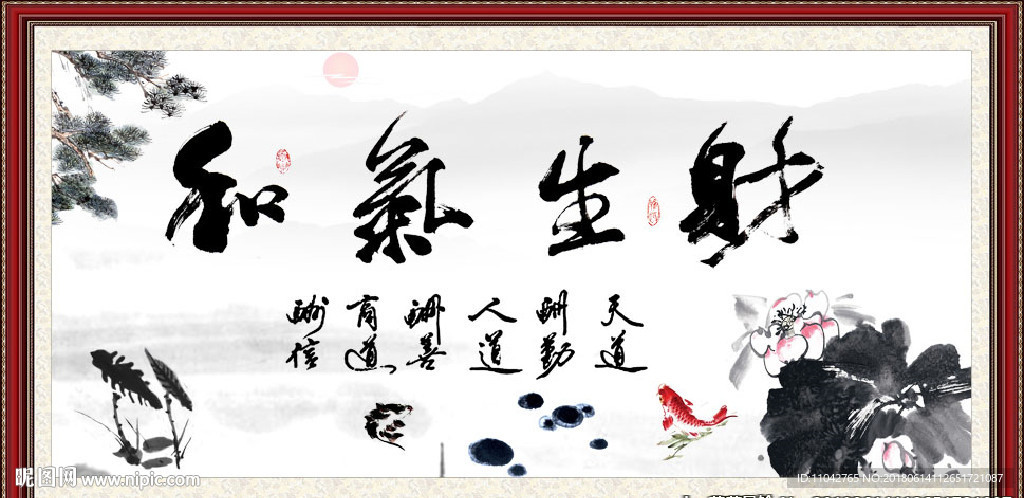 和氣生財
天道
酬勤
人道
酬善
商道
酬信
昵图网 www.nipic.com
ID:11042765 NO:20180614112651721087